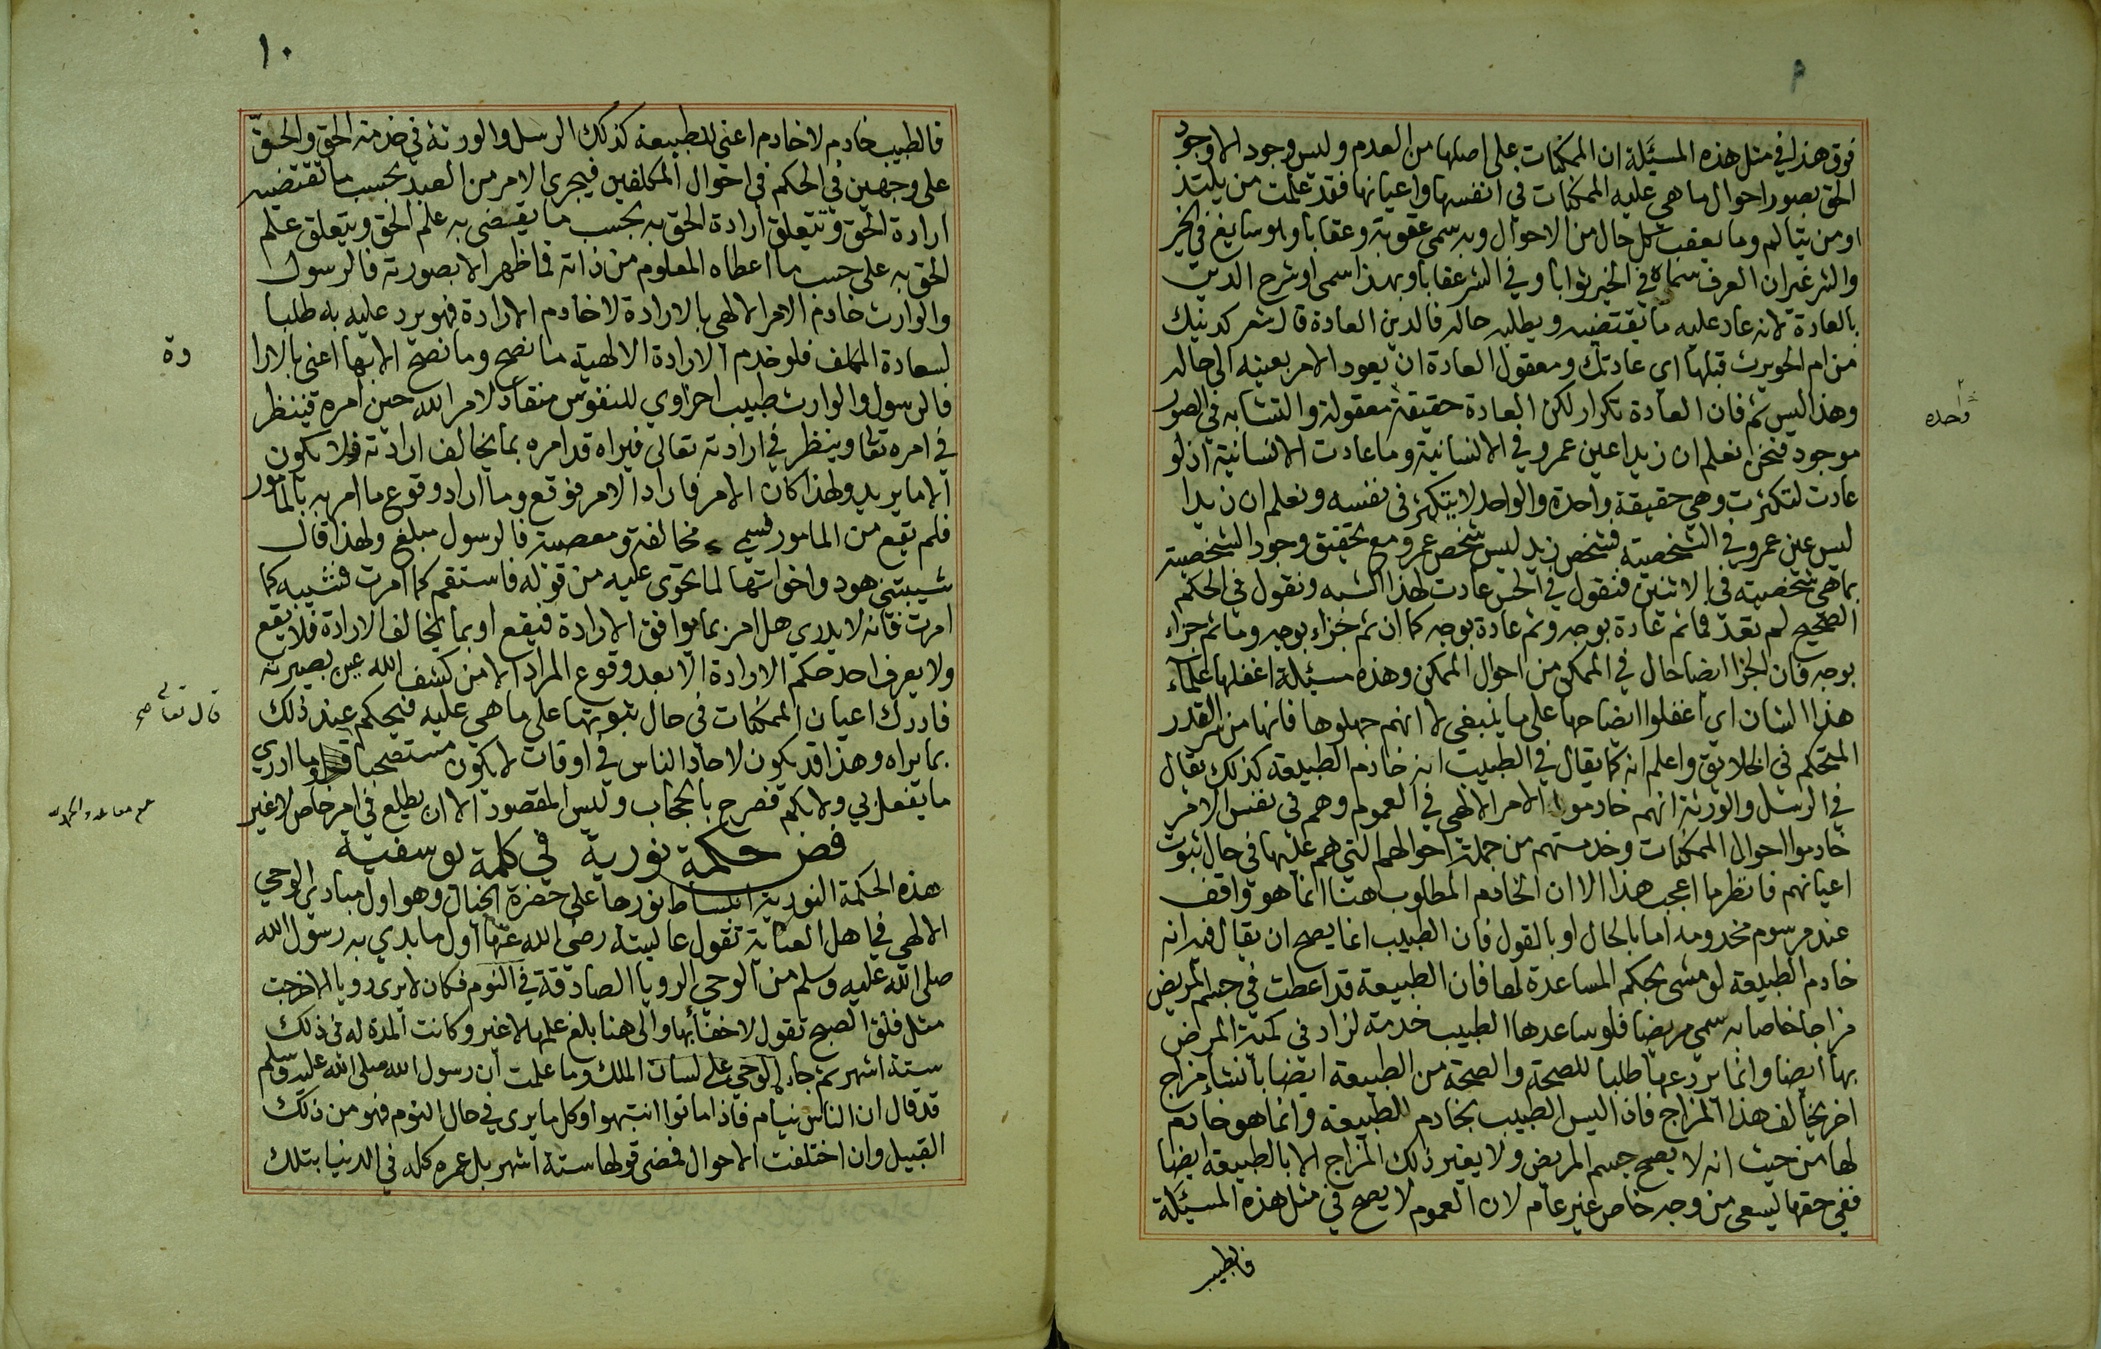 فوق هذا في مثل هذه المسئلة ان الممكنات على اصلها من العدم وليس وجود الا وجود
الحق بصور احوال ما هي عليه الممكنات في انفسها واعيانها فقد علمت من يلتذ
او من يتالم وما يعقب كل حال من الاحوال وبه سمي عقوبة وعقابا وهو سايغ في الخير
والشر غير ان العرف سماه في الخير ثوابا وفي الشر عقابا وبهذا سمي او شرح الدين
بالعادة لانه عاد عليه ما يقتضيه ويطلبه حاله فالدين العادة قال شعر كدينك
من ام الحويرث قبلها اي عادتك ومعقول العادة ان يعود الامر بعينه الى حاله
وهذا ليس ثم فان العادة تكرار لكن العادة حقيقة معقولة والتشابه في الصور
موجود فنحن نعلم ان زيدا عين عمرو في الانسانية وما عادت الانسانية اذ لو
عادت لتكثرت وهي حقيقة واحدة والواحد لا يتكثر في نفسه ونعلم ان زيدا
ليس عين عمرو في الشخصية فشخص زيد ليس شخص عمرو مع تحقيق وجود الشخصية
بما هي شخصية في الاثنين فنقول في الحس عادت لهذا الشبه ونقول في الحكم
الصحيح لم تعد فما ثم عادة بوجه وثم عادة بوجه كما ان ثم جزاء بوجه وما ثم جزاء
بوجه فان الجزا ايضا حال في الممكن من احوال الممكن وهذه مسئلة اغفلها علماء
هذا الشان اي اغفلوا ايضاحها على ما ينبغي لا انهم جهلوها فانها من سر القدر
المتحكم في الخلايق واعلم انه كما يقال في الطبيب انه خادم الطبيعة كذلك يقال
في الرسل والورثة انهم خادموا الامر الالهي في العموم وهم في نفس الامر
خادموا احوال الممكنات وخدمتهم من جملة احوالهم التي هم عليها في حال ثبوت
اعيانهم فانظر ما اعجب هذا الا ان الخادم المطلوب هنا انما هو واقف
عند مرسوم مخدومه اما بالحال او بالقول فان الطبيب انما يصح ان يقال فيه انه
خادم الطبيعة لو مشى بحكم المساعدة لها فان الطبيعة قد اعطت في جسم المريض
مزاجا خاصا به سمي مريضا فلو ساعدها الطبيب خدمة لزاد في كمية المرض
بها ايضا وانما يردعها طلبا للصحة والصحة من الطبيعة ايضا بانشاء مزاج
اخر يخالف هذا المزاج فاذا ليس الطبيب بخادم للطبيعة وانما هو خادم
لها من حيث انه لا يصح جسم المريض ولا يغير ذلك المزاج الا بالطبيعة ايضا
ففي حقها يسعى من وجه خاص غير عام لان العموم لا يصح في مثل هذه المسئلة
فالطبيب
واحده
١٠
فالطبيب خادم لا خادم اعني للطبيعة كذلك الرسل والورثة في خدمة الحق والحق
على وجهين في الحكم في احوال المكلفين فيجري الامر من العبد بحسب ما تقتضيه
ارادة الحق وتتعلق ارادة الحق به بحسب ما يقتضي به علم الحق ويتعلق علم
الحق به على حسب ما اعطاه المعلوم من ذاته فما ظهر الا بصورته فالرسول
والوارث خادم الامر الالهي بالارادة لا خادم الارادة فهو يرد عليه به طلبا
لسعادة المكلف فلو خدم الارادة الالهية ما نصح وما نصح الا بها اعني بالارا
دة
فالرسول والوارث طبيب اخراوي للنفوس منقاد لامر الله حين امره فينظر
في امره تعالى وينظر في ارادته تعالى فيراه قد امره بما يخالف ارادته فلا يكون
الا ما يريد ولهذا كان الامر فاراد الامر فوقع وما اراد وقوع ما امر به بالمامور
فلم يقع من المامور فسمي مخالفة ومعصية فالرسول مبلغ ولهذا قال
شيبتني هود واخواتها لما تحوي عليه من قوله فاستقم كما امرت فشيبه كما
امرت فانه لا يدري هل امر بما يوافق الارادة فيقع او بما يخالف الارادة فلا يقع
ولا يعرف احد حكم الارادة الا بعد وقوع المراد الا من كشف الله عين بصيرته
فادرك اعيان الممكنات في حال ثبوتها على ما هي عليه فيحكم عند ذلك
بما يراه وهذا قد يكون لاحاد الناس في اوقات لا يكون مستصحبا وما ادري
قال تعالى صح
ما يفعل بي ولا بكم فصرح بالحجاب وليس المقصود الا ان يطلع في امر خاص لا غير
فص حكمة نورية في كلمة يوسفية
هذه الحكمة النورية انبساط نورها على حضرة الخيال وهو اول مبادي الوحي
الالهي في اهل العناية تقول عايشة رضي الله عنها اول ما بدي به رسول الله
صلى الله عليه وسلم من الوحي الرويا الصادقة في النوم فكان لا يرى رويا الا خرجت
مثل فلق الصبح تقول لا خفائها والى هنا بلغ علمها لا غير وكانت المدة له في ذلك
ستة اشهر ثم جاء الوحي على لسان الملك وما علمت ان رسول الله صلى الله عليه وسلم
قد قال ان الناس نيام فاذا ماتوا انتبهوا وكل ما يرى في حال النوم فهو من ذلك
القبيل وان اختلفت الاحوال فمضى قولها ستة اشهر بل عمره كله في الدنيا بتلك